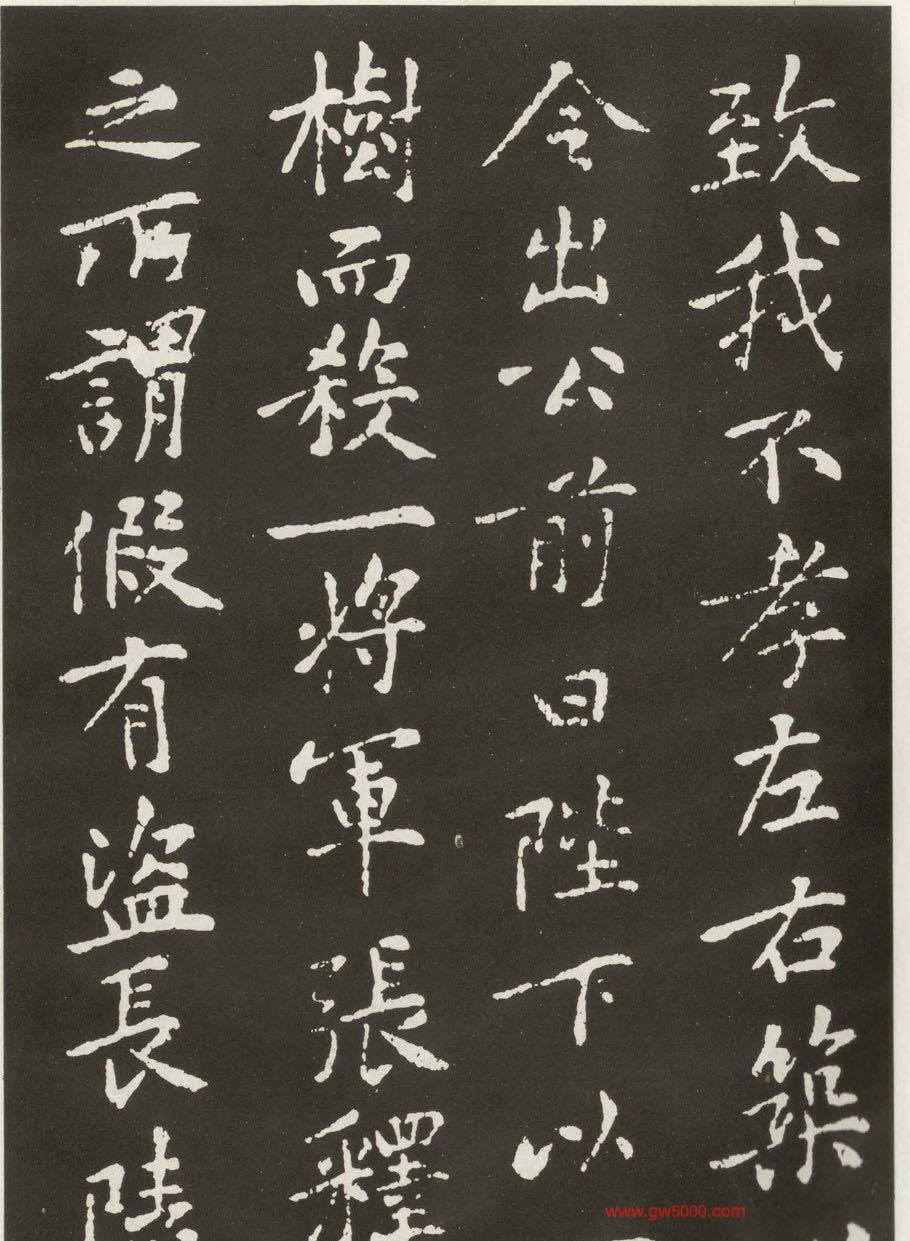 致我不孝左右築
令出公前曰陛下以
樹而殺一將軍張釋
之所謂假有盜長陵
www.gw5000.com